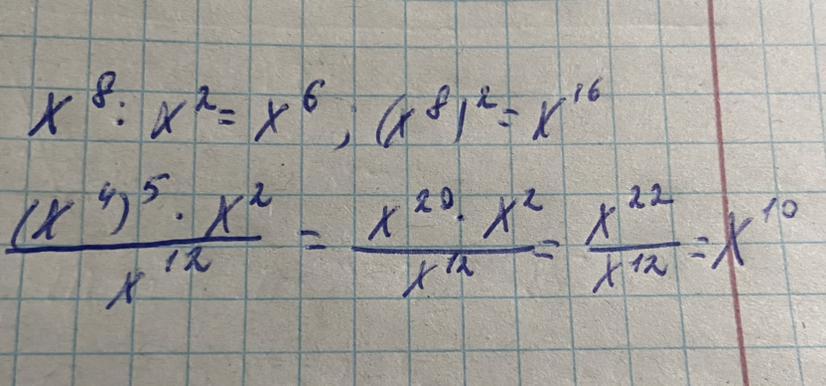 x⁸ : x² = x⁶ ; (x⁸)² = x¹⁶
(x⁴)⁵ · x² / x¹² = x²⁰ · x² / x¹² = x²² / x¹² = x¹⁰